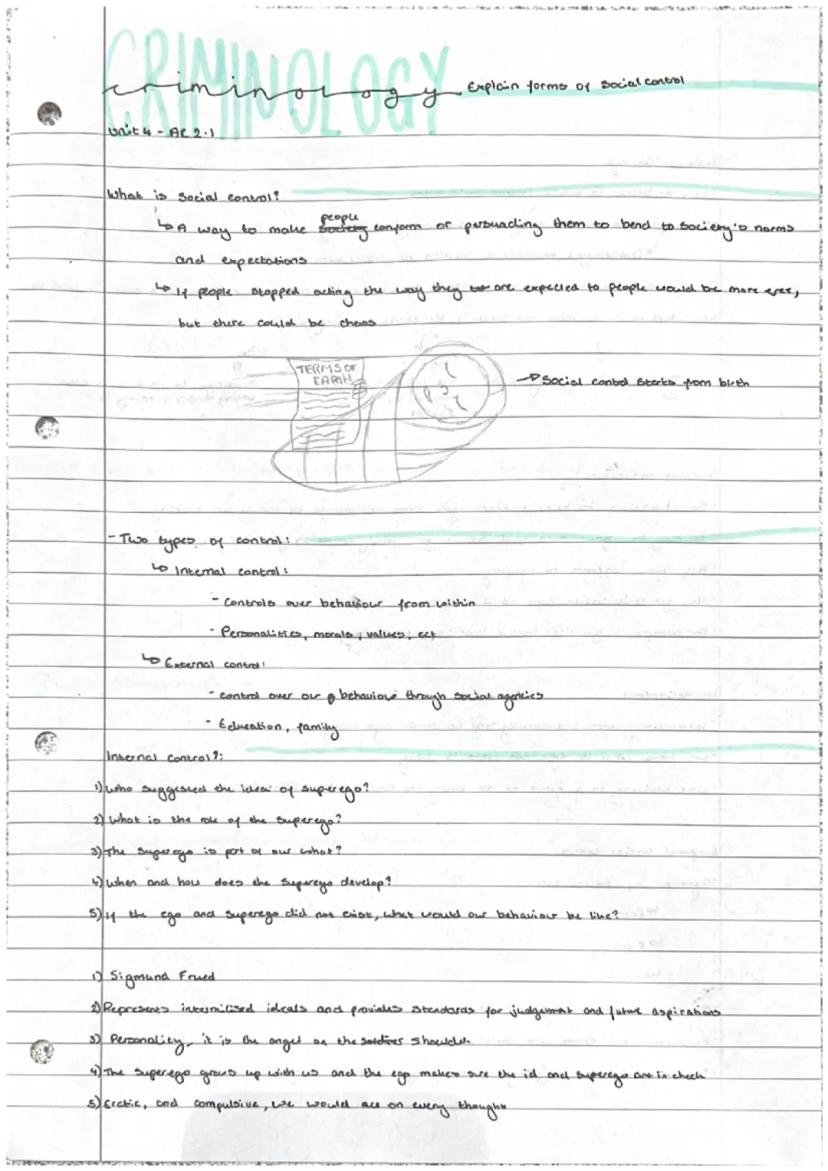 CRIMINOLOGY
criminology Explain forms of social control
Unit 4 - AC 2.1
What is social control?
↳ A way to make people conform or persuading them to bend to society's norms
and expectations
↳ If people stopped acting the way they are expected to people would be more free,
but there could be chaos
TERMS OF
EARTH
→ Social control starts from birth
- Two types of control:
↳ Internal control:
- Controls over behaviour from within
- Personalities, morals, values, ect
↳ External control:
- Control over our behaviour through social agencies
- Education, family
Internal control?:
1) Who suggested the idea of superego?
2) What is the role of the superego?
3) The superego is part of our what?
4) When and how does the superego develop?
5) If the ego and superego did not exist, what would our behaviour be like?
1) Sigmund Frued
2) Represents internilised ideals and provides standards for judgement and future aspirations
3) Personality, it is the angel on the shoulder
4) The superego grows up with us and the ego makes sure the id and superego are in check
5) Eractic, and compulsive, we would act on every thought